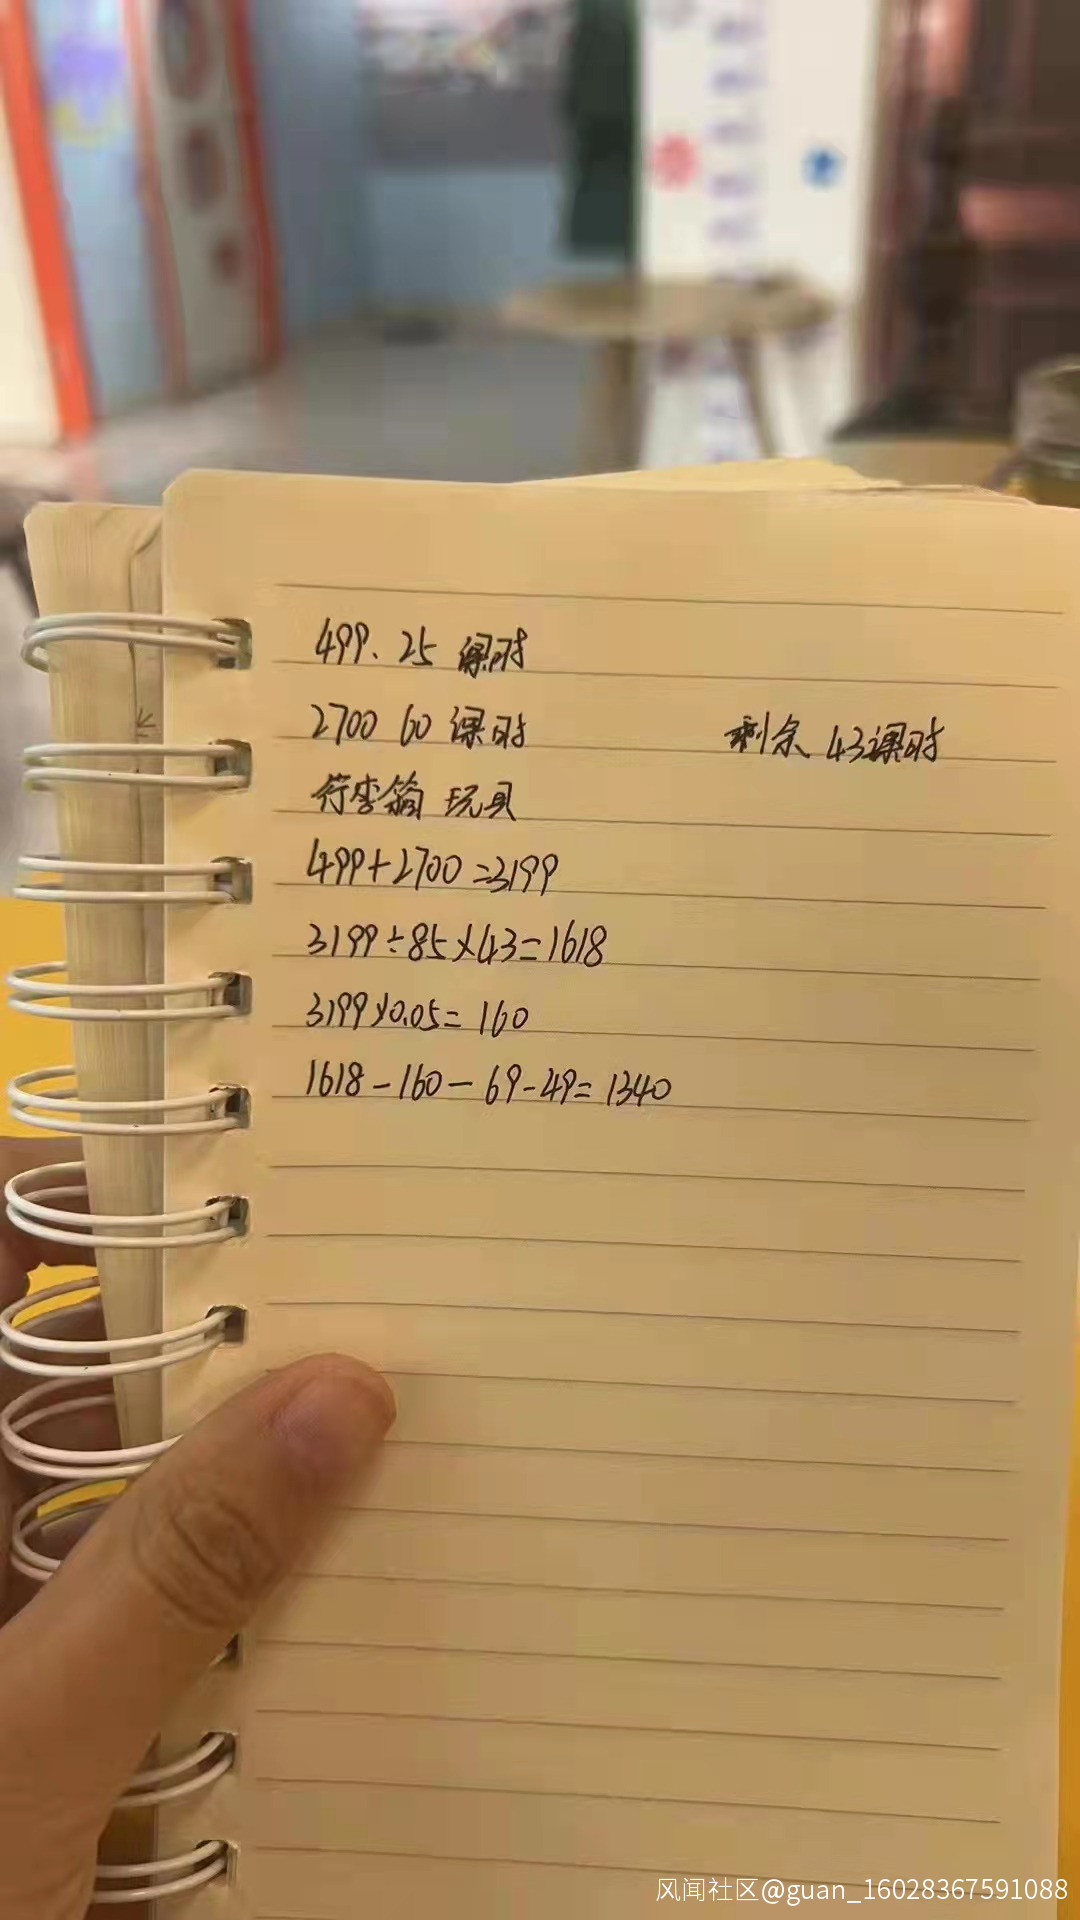 499. 25 课时
2700 60 课时 剩余 43课时
行李箱 玩具
499+2700=3199
3199÷85×43=1618
3199×0.05=160
1618-160-69-49=1340
风闻社区@guan_16028367591088